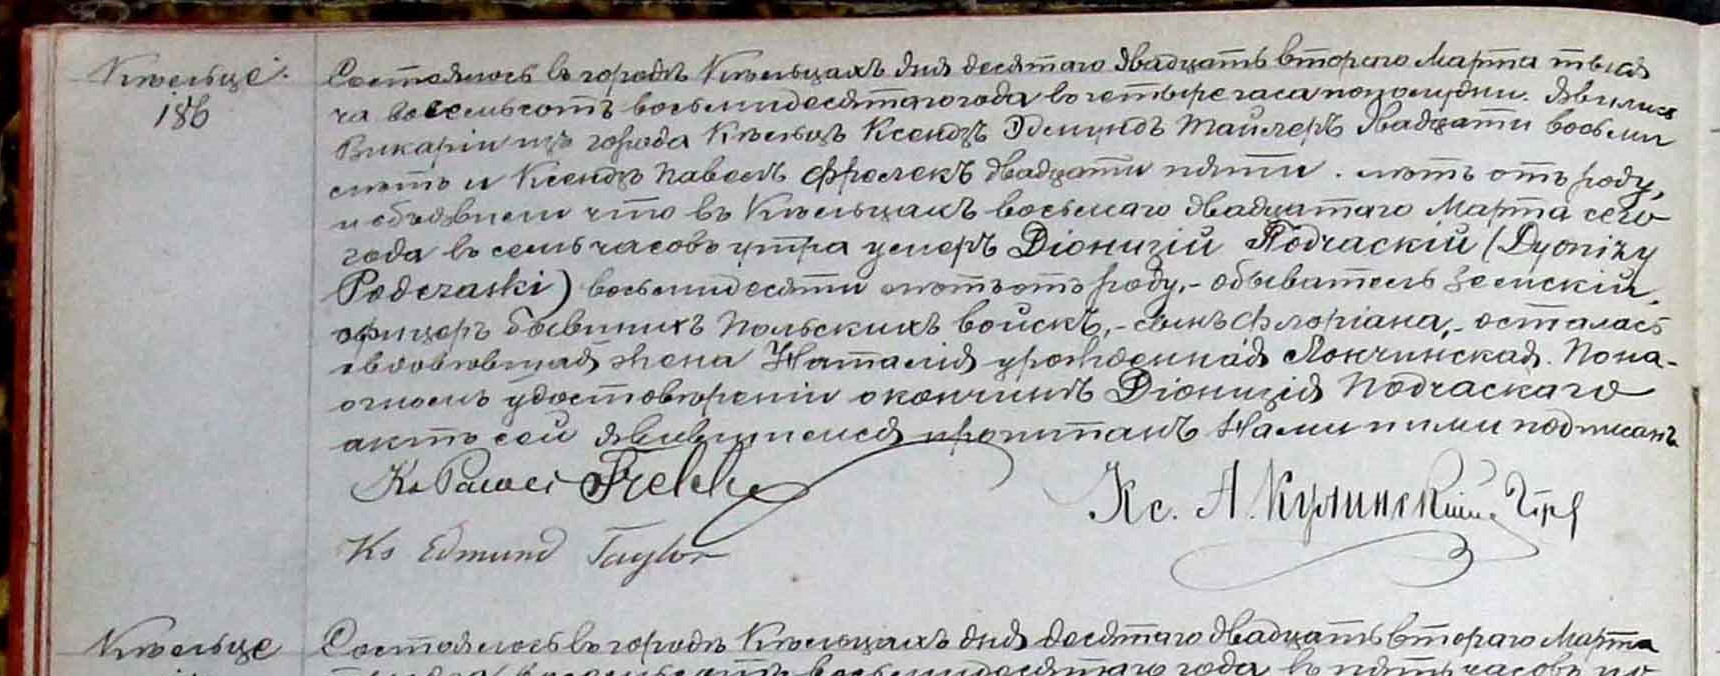 Кѣльце.
186
Состоялось въ городѣ Кѣльцахъ дня десятаго двадцать втораго Марта тыся
ча восемьсотъ восьмидесятаго года въ четыре часа пополудни. Явились
Викаріи изъ города Кѣльцъ Ксендзъ Эдмундъ Тайлеръ двадцати восьми
лѣтъ и Ксендзъ Павелъ Фрелекъ двадцати пяти лѣтъ отъ роду,
и объявили что въ Кѣльцахъ восьмаго двадцатаго Марта сего
года въ семь часовъ утра умеръ Діонизій Подчаскій (Dyonizy
Podczaski) восьмидесяти лѣтъ отъ роду, - обыватель земскій,
офицеръ бывшихъ Польскихъ войскъ, - сынъ Флоріана, - осталась
овдовѣвшая жена Наталія урожденная Лончинская. По на-
очномъ удостовѣреніи о кончинѣ Діонизія Подчаскаго
актъ сей явившимся прочитанъ Нами и ими подписанъ
Ks Paweł Frelek
Кс. А. Кулинскій
Ks Edmund Taylor
Кѣльце
Состоялось въ городѣ Кѣльцахъ дня десятаго двадцать втораго Марта
восемьсотъ восьмидесятаго года въ пять часовъ по